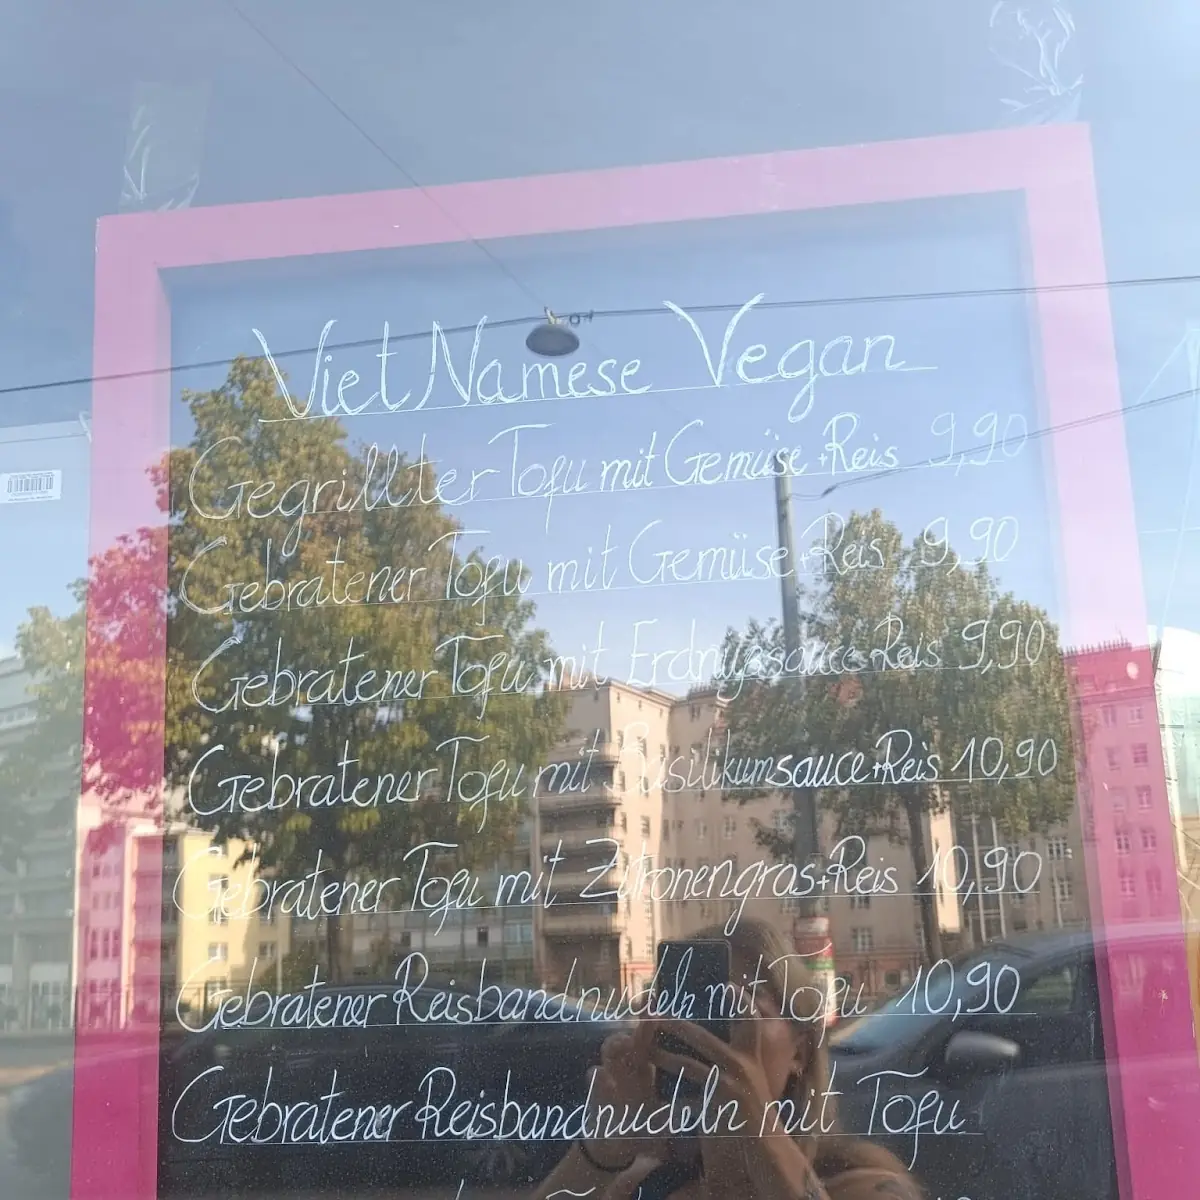 Viet Namese Vegan
Gegrillter Tofu mit Gemüse+Reis 9,90
Gebratener Tofu mit Gemüse+Reis 9,90
Gebratener Tofu mit Erdnußsauce+Reis 9,90
Gebratener Tofu mit Basilikumsauce+Reis 10,90
Gebratener Tofu mit Zitronengras+Reis 10,90
Gebratener Reisbandnudeln mit Tofu 10,90
Gebratener Reisbandnudeln mit Tofu